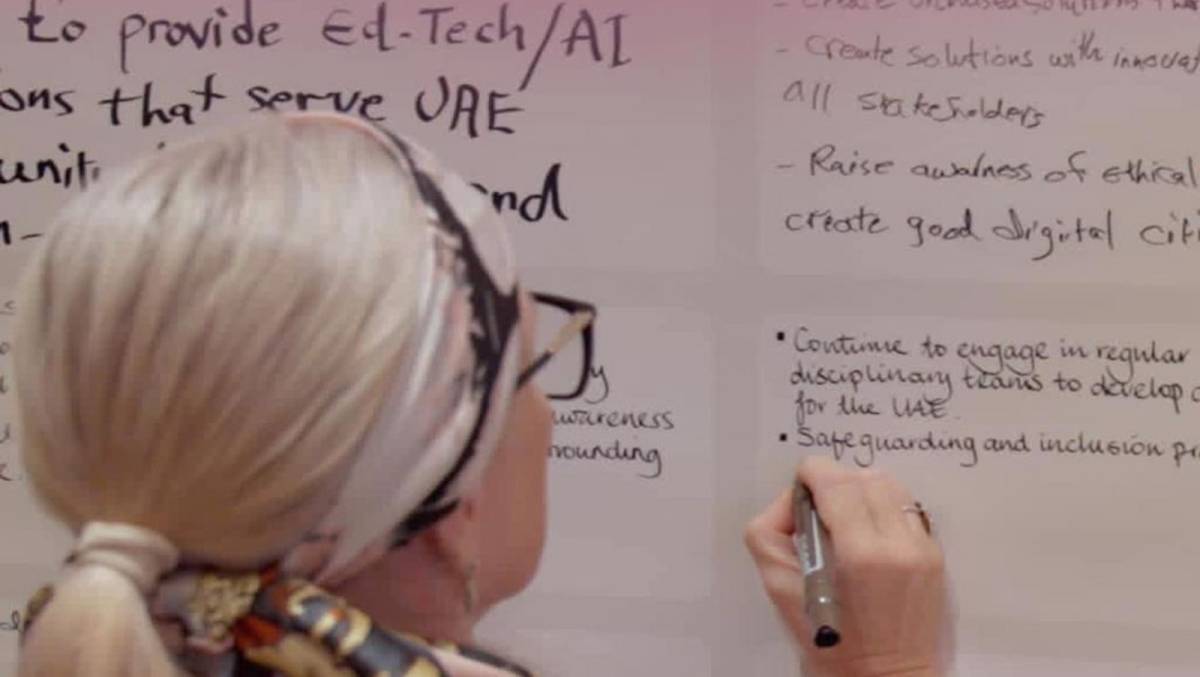 to provide Ed-Tech/AI
ons that serve UAE
unit
nd
- create solutions with innovat
all stakeholders
- Raise awarness of ethical
create good digital citi
y
awareness
rounding
▪ Continue to engage in regular
disciplinary teams to develop
for the UAE.
▪ Safeguarding and inclusion pr